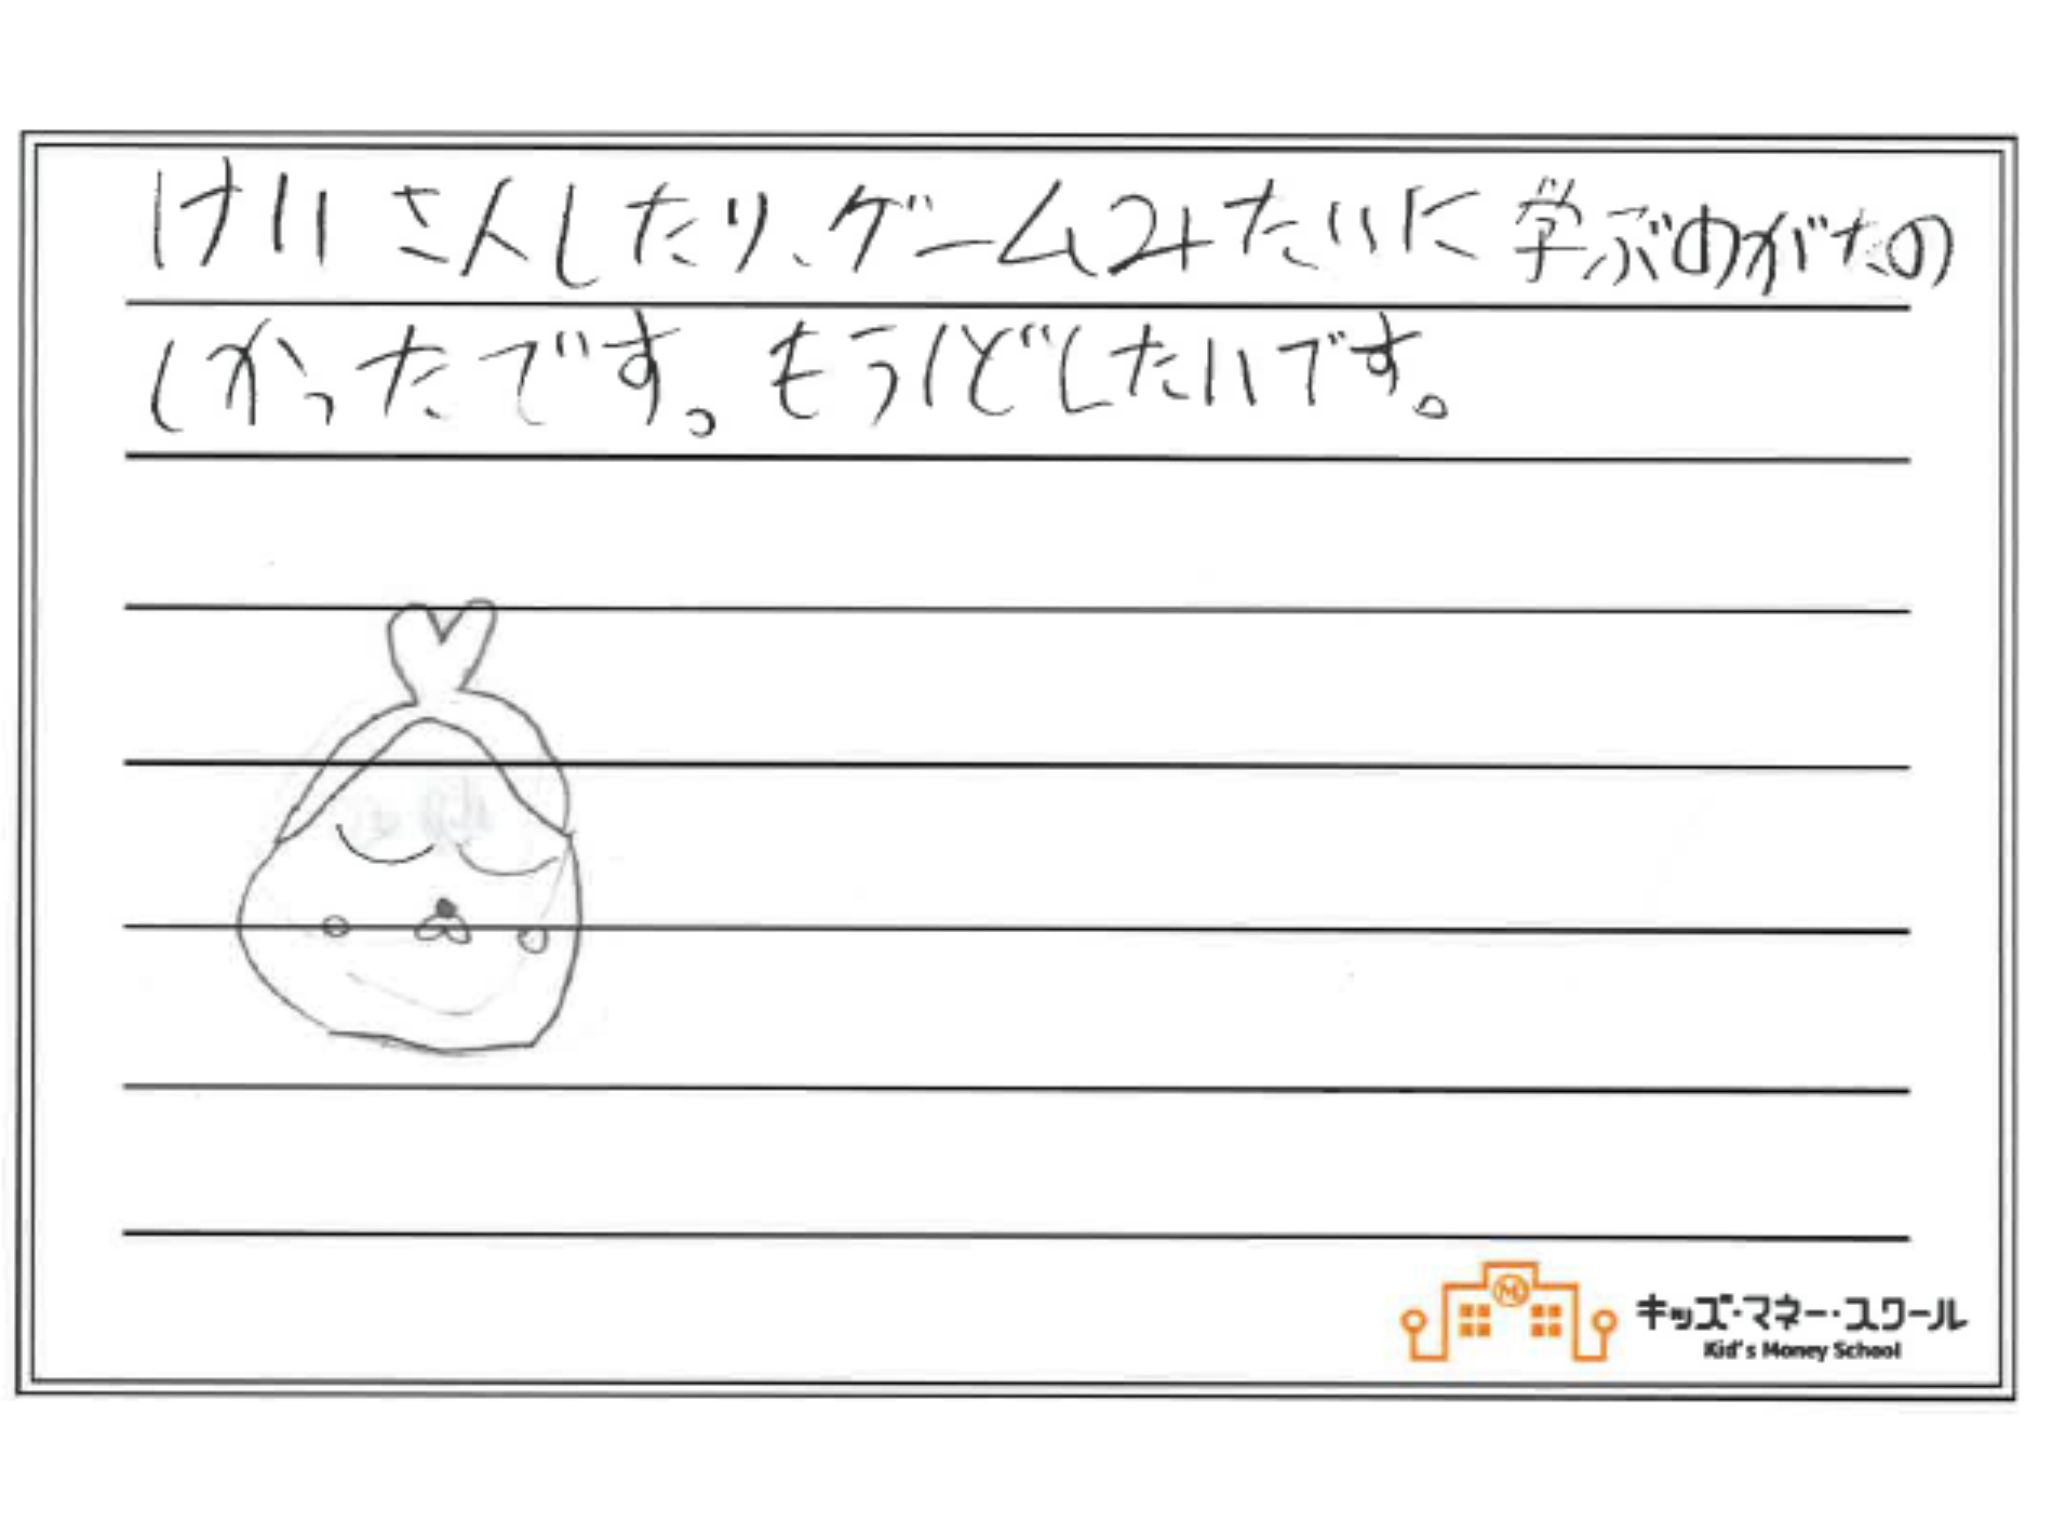 けいさんしたり、ゲームみたいに学ぶのがたの
しかったです。もういどしたいです。
キッズ・マネー・スクール
Kid's Money School